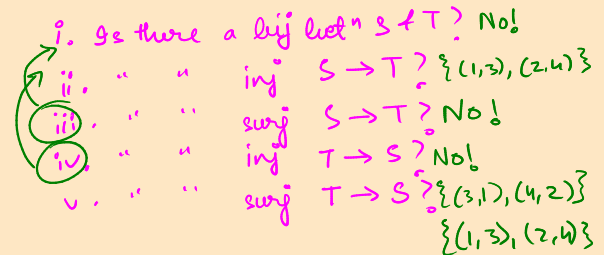 i. Is there a bij betⁿ S & T? No!
ii. " " inj S → T? {(1,3), (2,4)}
iii. " " surj S → T? No!
iv. " " inj T → S? No!
v. " " surj T → S? {(3,1), (4,2)}
{(1,3), (2,4)}